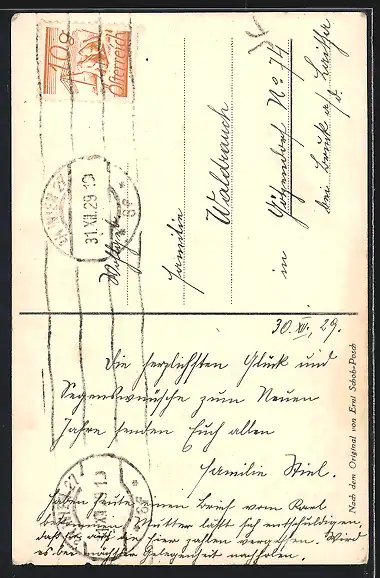 10 g
Österreich
31.XII.29
Wohlgeb.
Familie
Waldrauch
in Götzendorf No 74
bei Bruck a/d. Leitha
30. XII. 29.
Die herzlichsten Glück und
Segenswünsche zum Neuen
Jahre senden Euch allen
Familie Stiel.
Haben heute einen Brief vom Karl
bekommen Mutter läßt sich entschuldigen,
daß sie auf die hier zahlen vergessen. Wird
es bei nächster Gelegenheit nachholen.
Nach dem Original von Ernl Schob-Posch